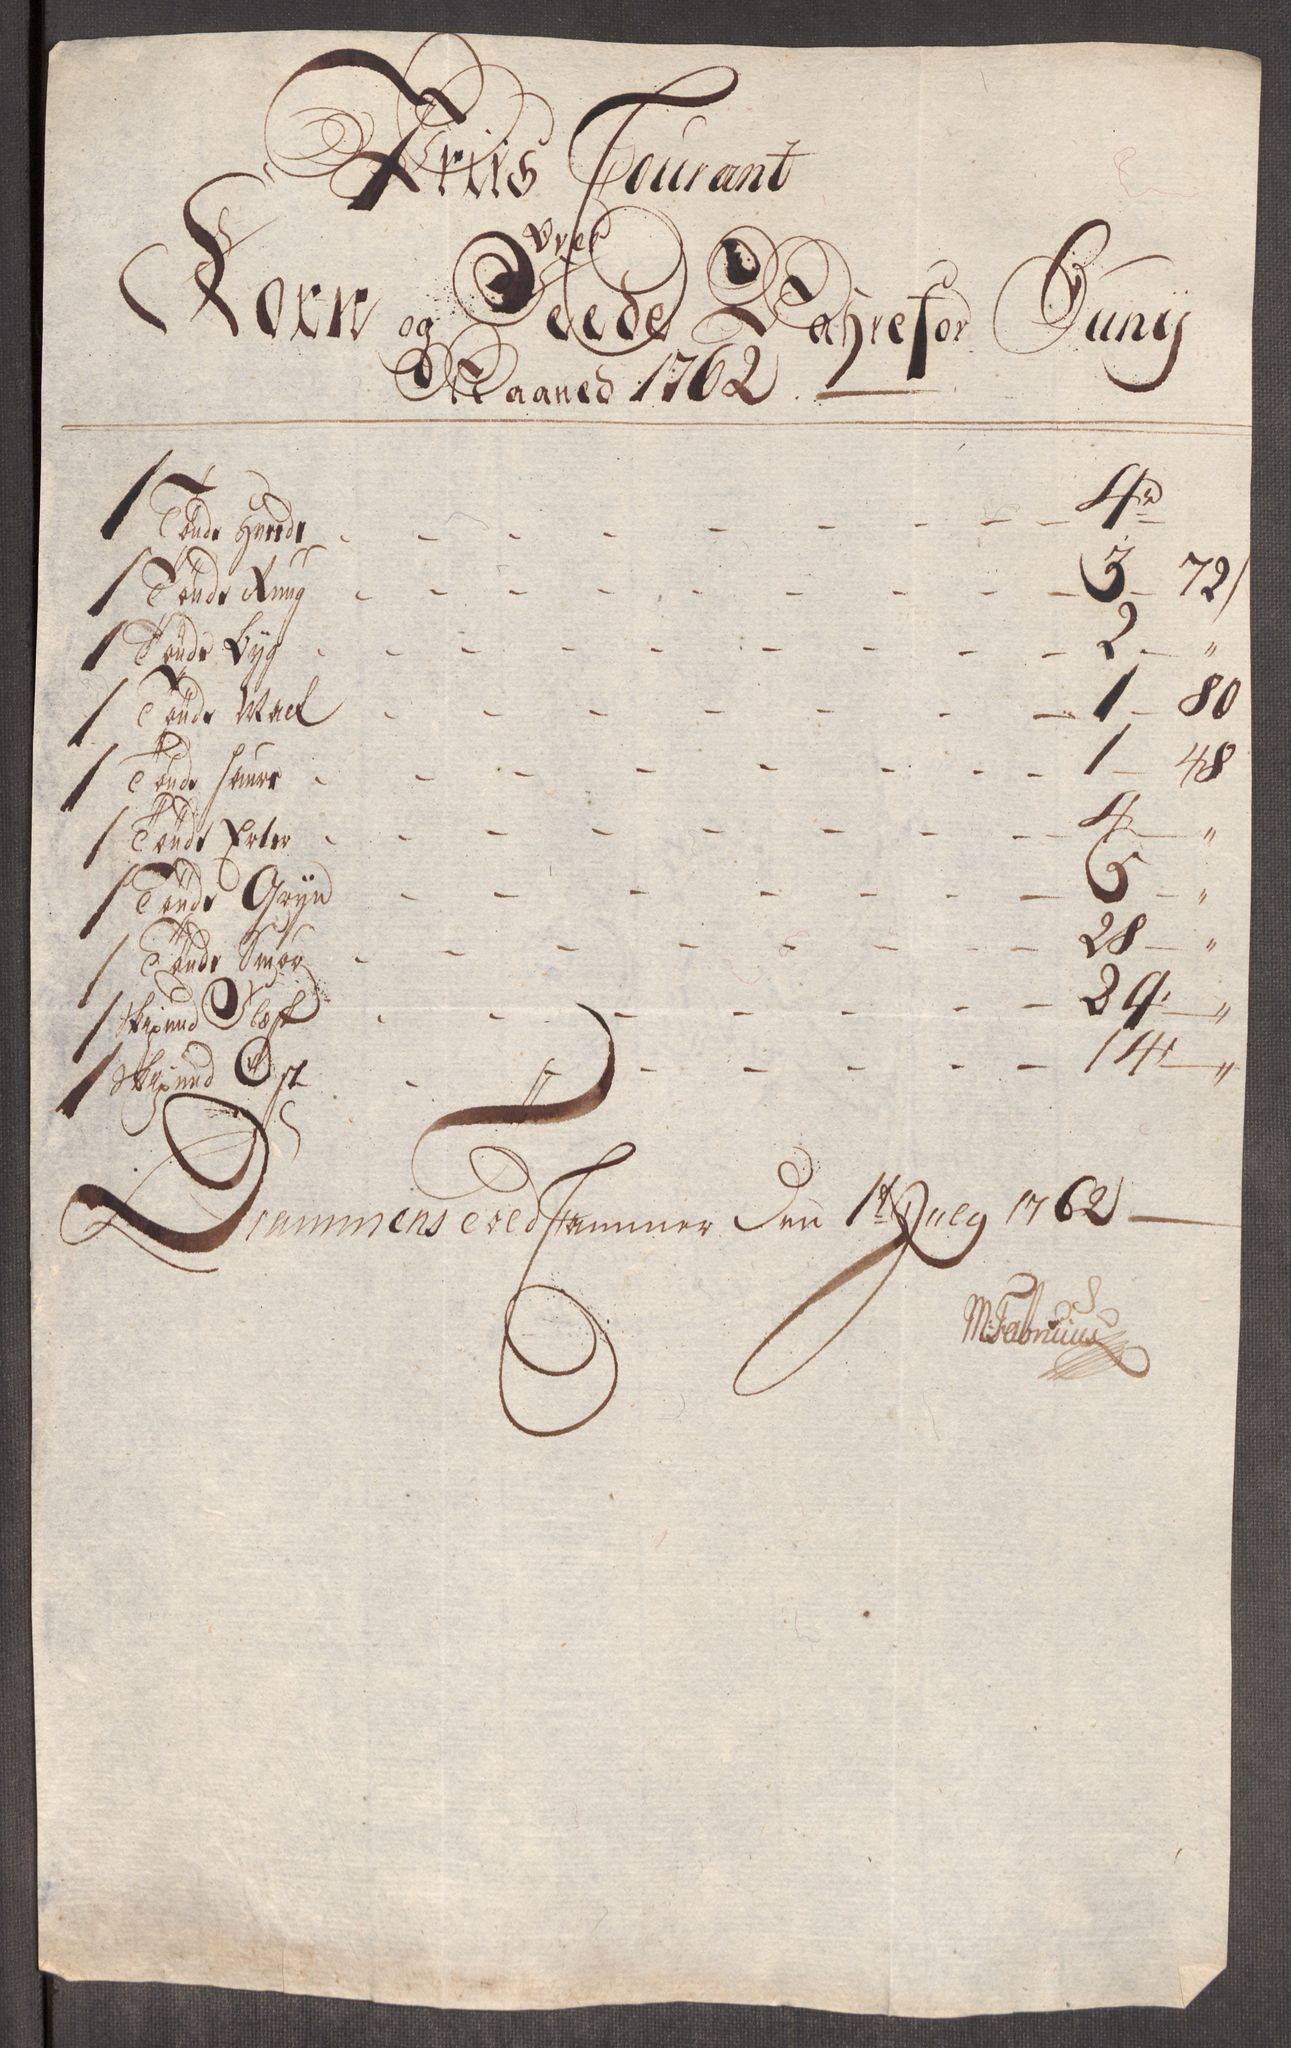 Priis Courant
over
Korn og Feede Wahre for Juny
Maaned 1762.
1 Tønde Hvede - 4 rd
1 Tønde Rug - 3 - 72 s
1 Tønde Byg - 2 - "
1 Tønde Malt - 1 - 80
1 Tønde Haure - 1 - 48
1 Tønde Erter - 4 - "
1 Tønde Gryn - 6 - "
1 Tønde Smør - 28 - "
1 Skpund Flesk - 24 - "
1 Skpund Ost - 14 - "
Drammens told Kammer Den 1t July 1762
M: Fabricius